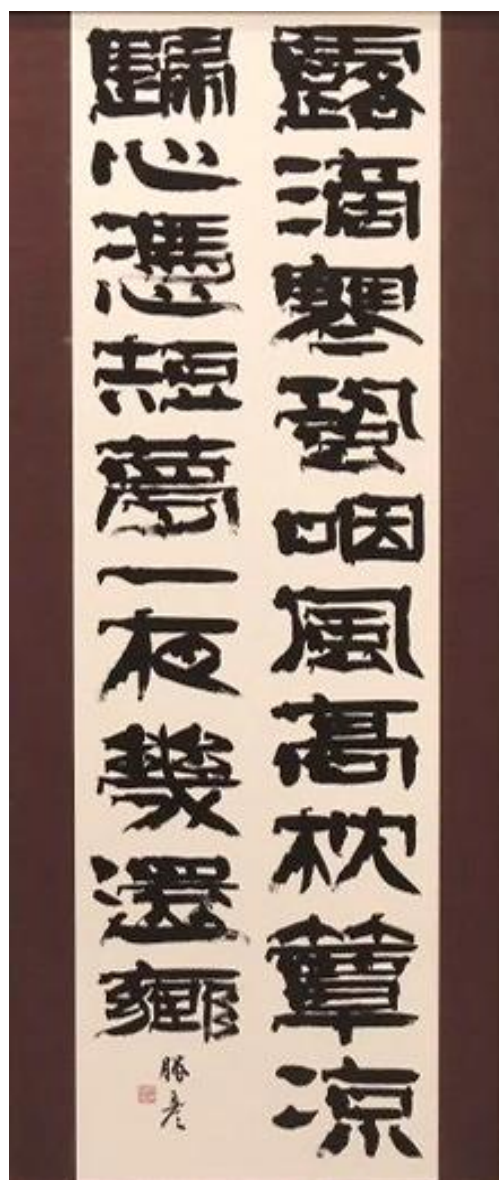 露滴寒蛩咽風髙枕簟凉
歸心憑短夢一夜幾還鄉
勝彦